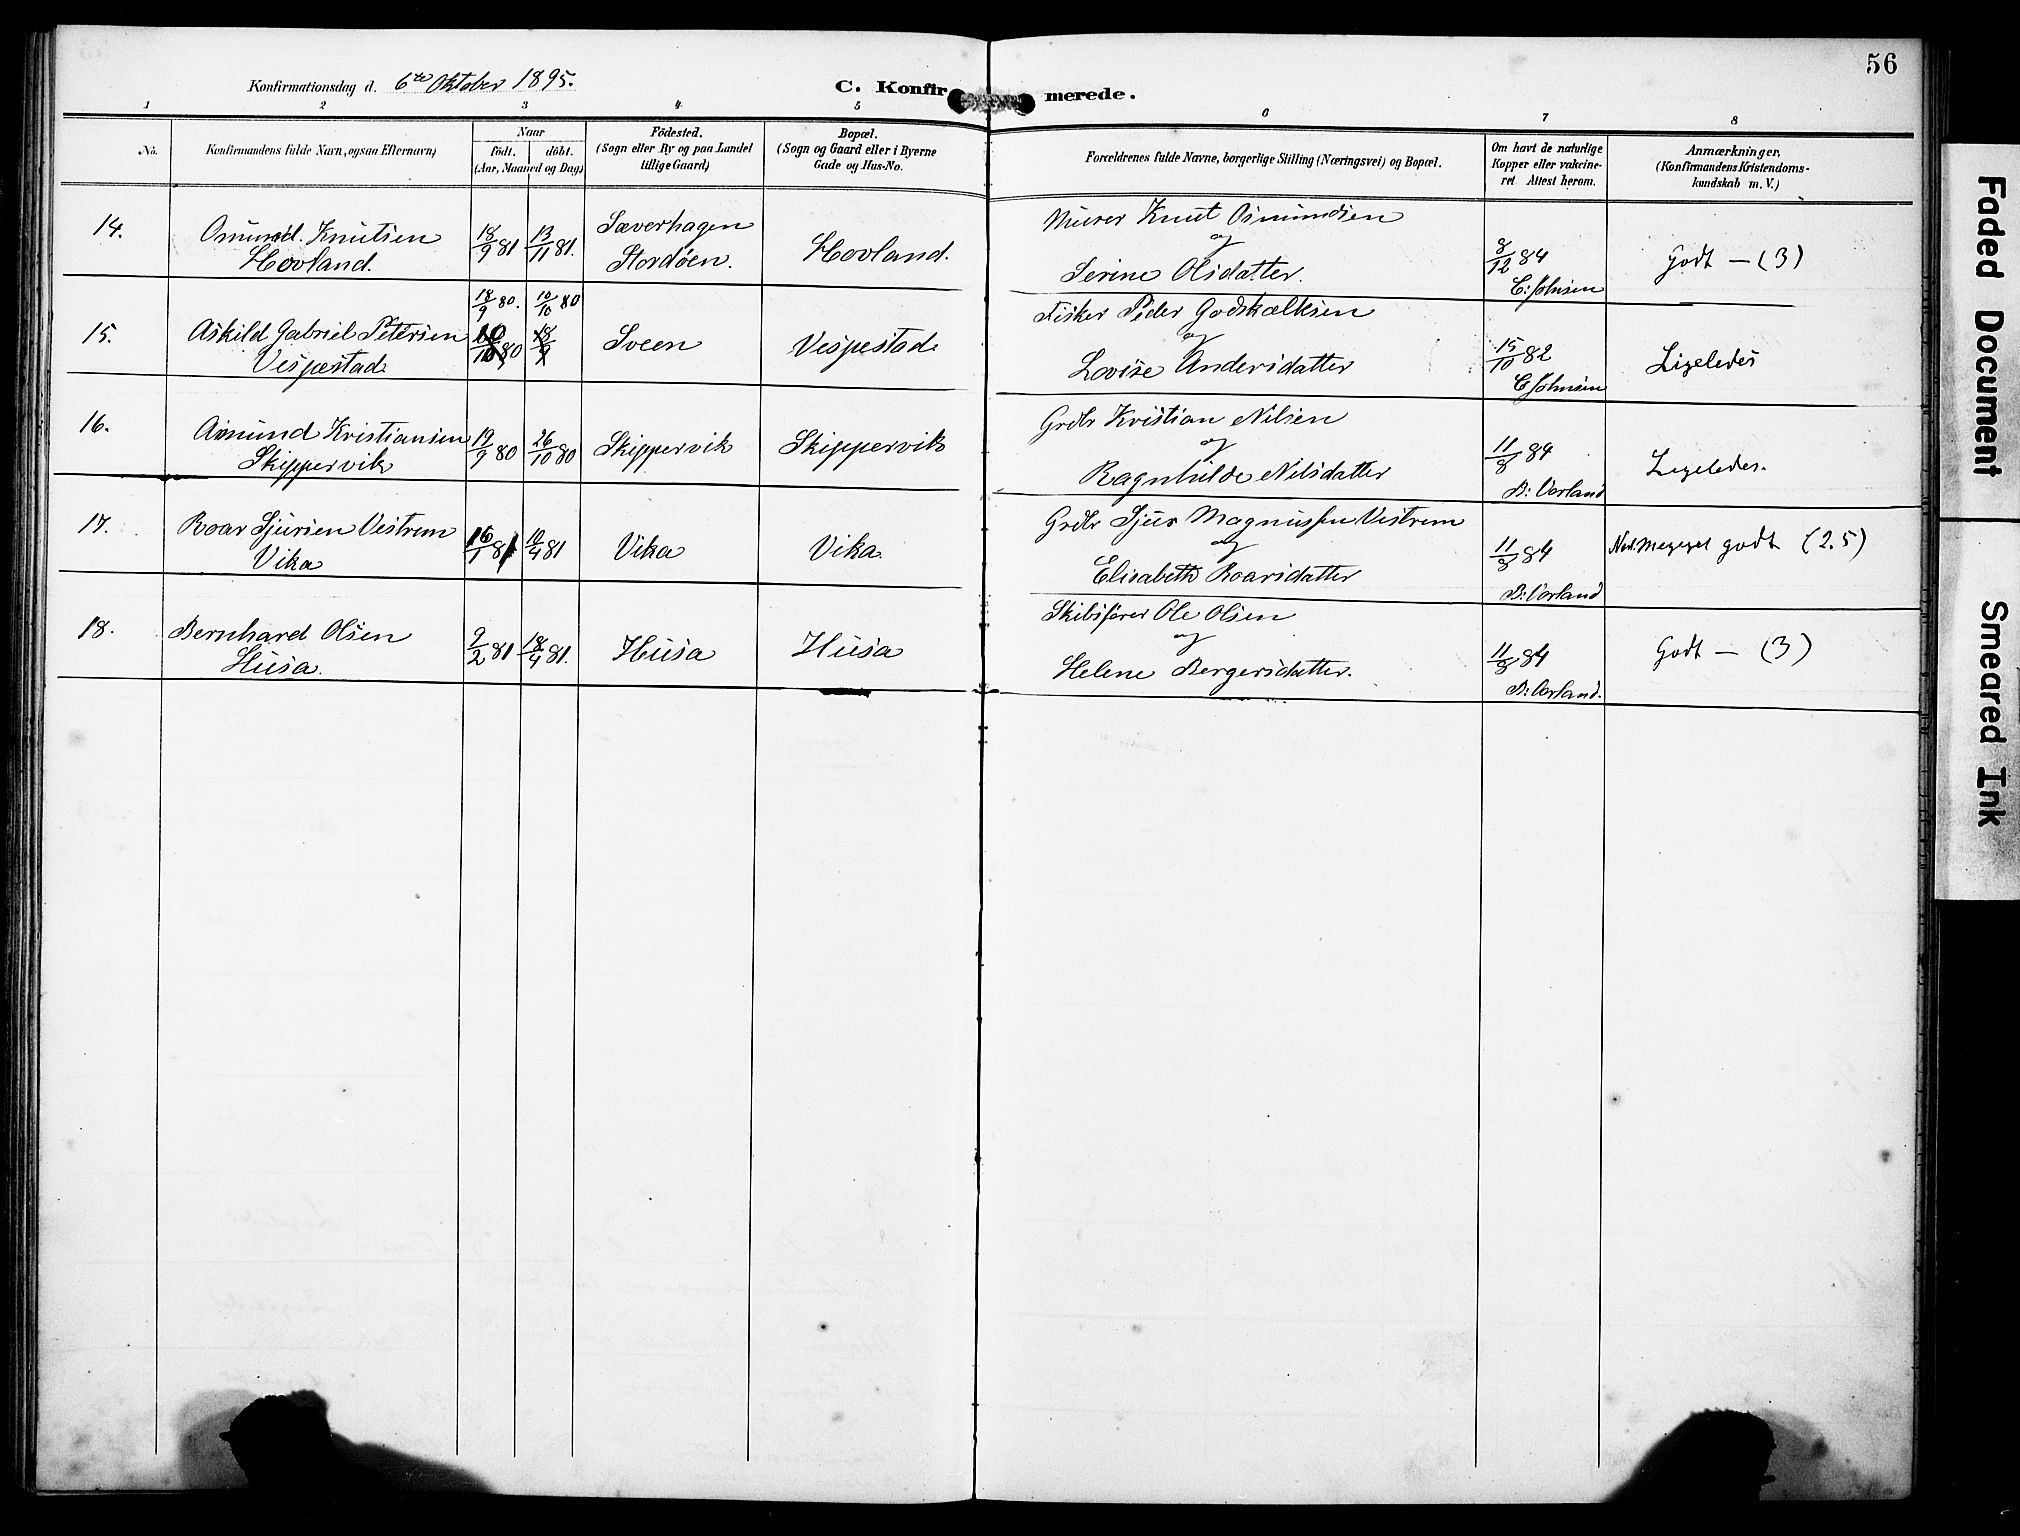 56
Konfirmationsdag d. 6te Oktober 1895.
C. Konfirmerede.
1 2 3 4 5 6 7 8
No.
Konfirmandens fulde Navn, ogsaa Efternavn)
Naar
födt. döbt.
(Aar, Maaned og Dag)
Födested.
(Sogn eller By og paa Landet
tillige Gaard)
Bopæl.
(Sogn og Gaard eller i Byerne
Gade og Hus-No.
Forældrenes fulde Navne, borgerlige Stilling (Næringsvei) og Bopæl.
Om havt de naturlige
Kopper eller vakcine-
ret Attest herom.
Anmærkninger,
(Konfirmandens Kristendoms-
kundskab m. V.)
14.
Omund Knutsen
Hovland.
18/9 81 13/11 81.
Sæverhagen
Stordøen.
Hovland.
Murer Knut Osmundsen
og
Serine Olsdatter.
8/12 84
C: Johnsen
Godt — (3)
15.
Askild Gabriel Petersen
Vespestad
18/9 80. 10/10 80
10/10 80 18/9
Sveen
Vespestad
Fisker Peder Godskalksen
og
Lovise Andersdatter
15/10 82
C Johnsen
Ligeledes
16.
Amund Kristiansen
Skippervik
19/9 80 26/10 80
Skippervik
Skippervik
Grdbr Kristian Nilsen
og
Ragnhilde Nilsdatter
11/8 84
B: Vorland
Ligeledes.
17.
Roar Sjursen Vestrem
Vika
16/1 81 10/4 81
Vika
Vika
Grdbr Sjur Magnussen Vestrem
og
Elisabeth Roarsdatter
11/8 84
B: Vorland
Meget godt (2.5)
18.
Bernhard Olsen
Husa.
9/2 81 18/4 81.
Husa
Husa
Skibsfører Ole Olsen
og
Helene Bergersdatter.
11/8 84
B: Vorland.
Godt — (3)
Faded Document
Smeared Ink